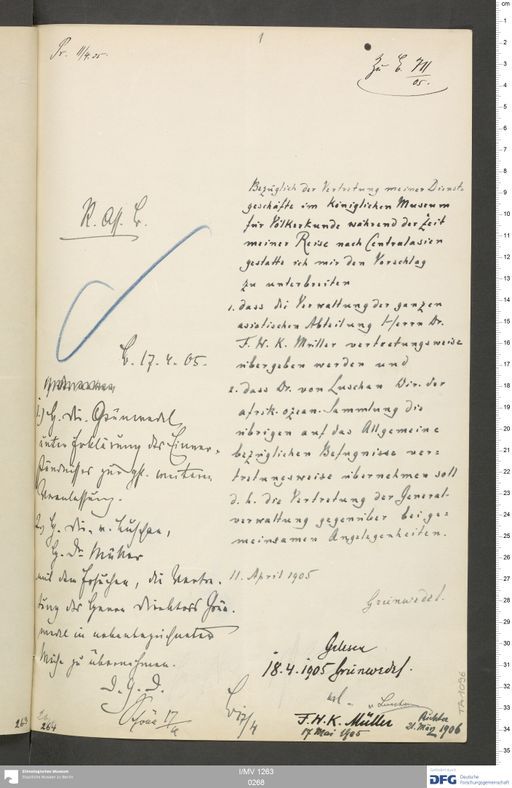 1
Pr. 11/4.05
Zu E. 711/05.
Bezüglich der Vertretung meiner Dienst-
geschäfte im Königlichen Museum
für Völkerkunde während der Zeit
meiner Reise nach Centralasien
gestatte ich mir den Vorschlag
zu unterbreiten
1. dass die Verwaltung der ganzen
asiatischen Abteilung Herrn Dr.
F. W. K. Müller vertretungsweise
übergeben werden und
2. dass Dr. von Luschan Dir. der
afrik. ozean. Sammlung die
übrigen auf das Allgemeine
bezüglichen Befugnisse ver-
tretungsweise übernehmen soll
d. h. die Vertretung der General-
verwaltung gegenüber bei ge-
meinsamen Angelegenheiten.
11. April 1905
Grünwedel.
B. 17. 4. 05.
1.) H. Dir. Grünwedel,
unter Erklärung des Einver-
ständnisses zur gfl. weiteren
Veranlassung.
2.) H. Dir. v. Luschan,
H. Dr. Müller
mit dem Ersuchen, die Vertre-
tung des Herrn Direktors Grün-
wedel in nebenbezeichneter
Weise zu übernehmen.
D. G. D.
17/4
Gelesen
18.4.1905 Grünwedel.
v. Luschan
F. W. K. Müller
17 Mai 1905
21. März 1906
TA 1096
263
264
Ethnologisches Museum
Staatliche Museen zu Berlin
I/MV 1263
0268
DFG Deutsche
Forschungsgemeinschaft
cm
1
2
3
4
5
6
7
8
9
10
11
12
13
14
15
16
17
18
19
20
21
22
23
24
25
26
27
28
29
30
31
32
33
34
35